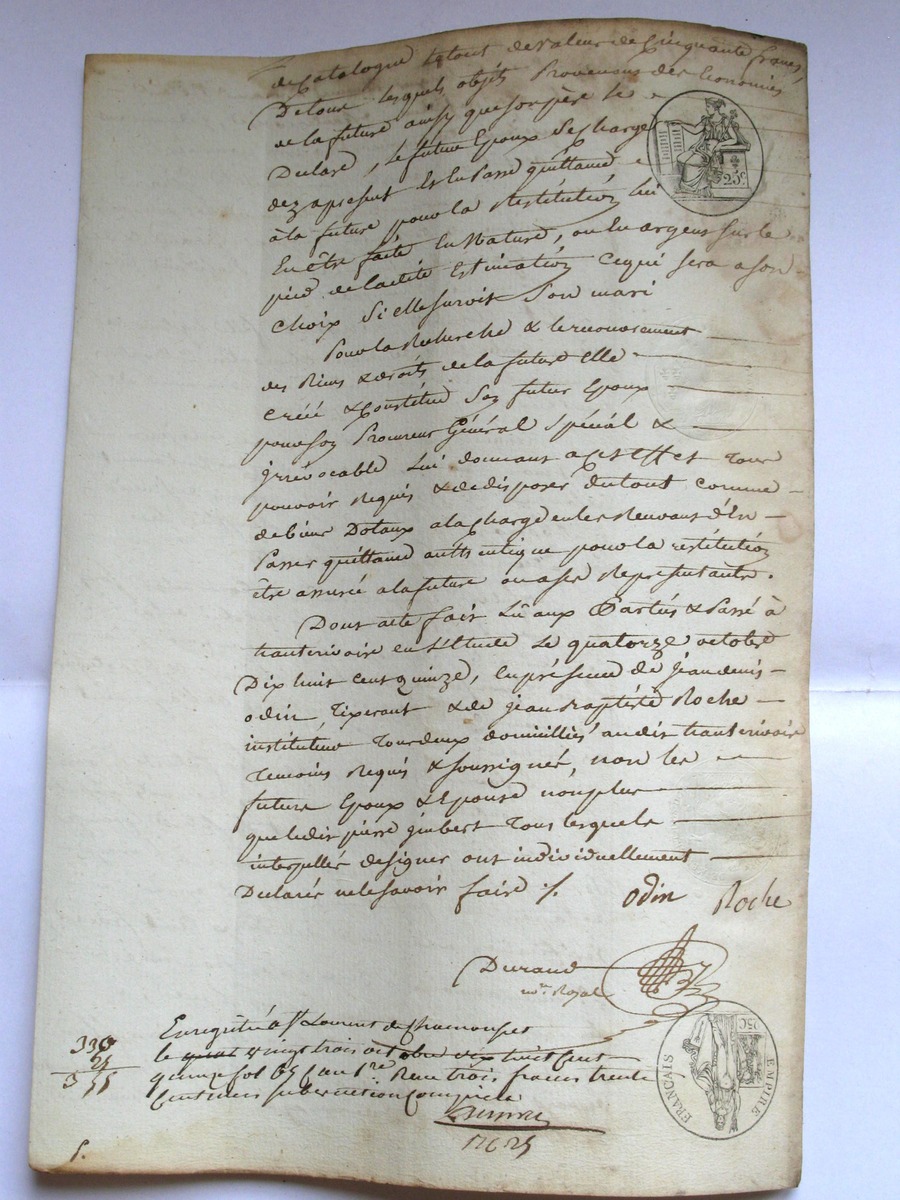 de Catalogue le tout de valeur de Cinquante francs,
De tous lesquels objets Provenens des Economies
de la future ainsy que son père le
Declare, le future Epoux Se Charge
dez apresent Et En Passe quittance
à la future pour la Restitution lui
En être faite En Nature, ou En argens sur le
pied de ladite Estimation Ce qui sera a son
Choix Si elle survit Son mari
Pour la Recherche & le recouvrement
des Biens & droits de la future Elle
Créé & Constitue Son futur Epoux
pour son Procureur Général Spécial &
irrévocable lui donnant a Cet Effet Tour
pouvoir Requis & de disposer du tout Comme
de biens Dotaux a la Charge en les Recevant d'En
Passer quittance authentique pour la restitution
être assurée a la future ou a ses Representants.
Dont acte fait Lû aux Parties & Passé à
hauterivoire en L'Etude Le quatorze octobre
Dix huit Cent quinze, En présence de jean denis
odin Tixerant & de jean Baptiste Roche
instituteur Tous deux domiciliés audit hauterivoire
Temoins Requis & soussignés, non les
future Epoux & Epouse non plus
que ledit pierre jimbert Tous lesquels
interpellés de signer ont individuellement
Declarés ne le savoir faire ./.
odin Roche
Durand
no.re Royal
Enregistré à St Laurent de Chamousset
le vingt trois octobre dix huit Cent
quinze fol 65 Reçu trois francs trente
Centimes subvention Comprise
330
25
355
25c
EMPIRE FRANÇAIS
25C